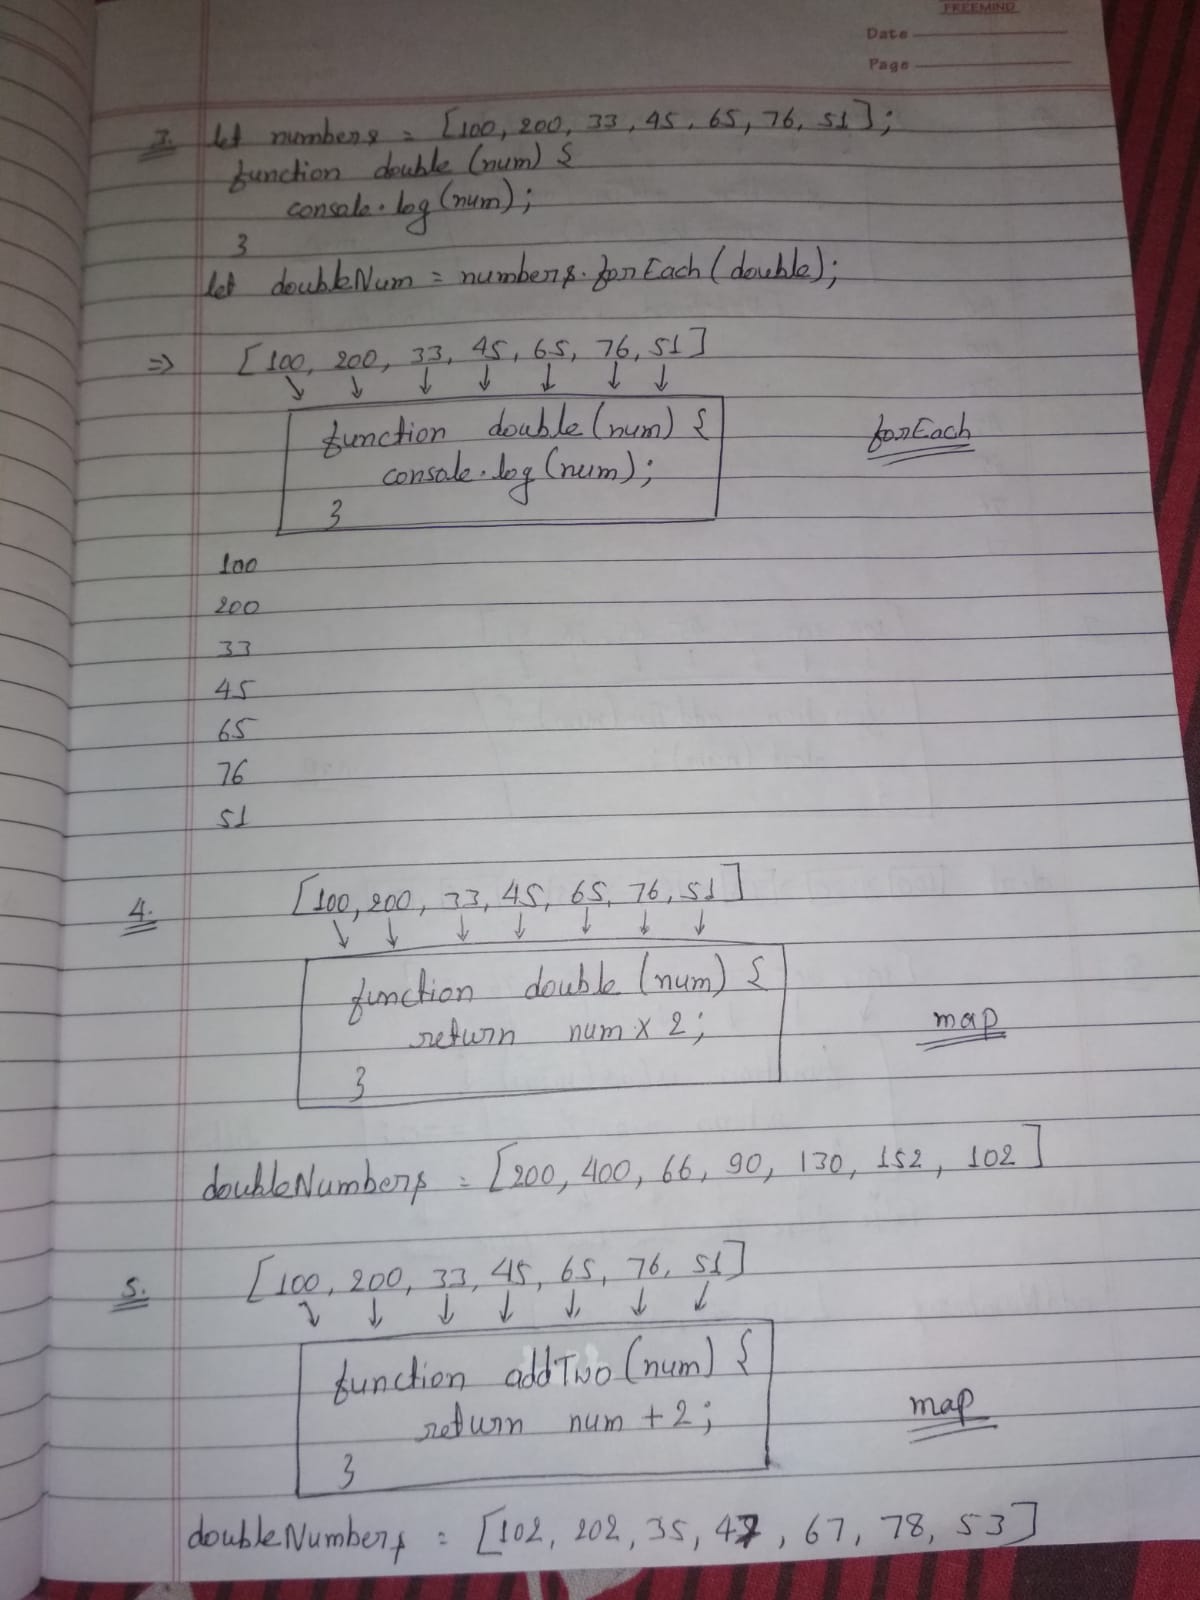 FREEMIND
Date
Page
3. let numbers = [100, 200, 33, 45, 65, 76, 51];
function double (num) {
console.log(num);
}
let doubleNum = numbers.forEach(double);
=> [100, 200, 33, 45, 65, 76, 51]
↘ ↓ ↓ ↓ ↓ ↓ ↓
function double(num) {
console.log(num);
}
forEach
100
200
33
45
65
76
51
4. [100, 200, 33, 45, 65, 76, 51]
↘ ↓ ↓ ↓ ↓ ↓ ↓
function double (num) {
return num x 2;
}
map
doubleNumbers = [200, 400, 66, 90, 130, 152, 102]
5. [100, 200, 33, 45, 65, 76, 51]
↘ ↓ ↓ ↓ ↓ ↓ ↓
function addTwo (num) {
return num + 2;
}
map
doubleNumbers = [102, 202, 35, 47, 67, 78, 53]